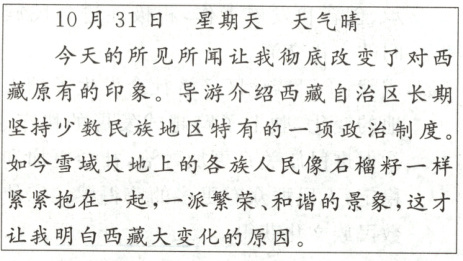 10月31日 星期天 天气晴
今天的所见所闻让我彻底改变了对西
藏原有的印象。导游介绍西藏自治区长期
坚持少数民族地区特有的一项政治制度。
如今雪域大地上的各族人民像石榴籽一样
紧紧抱在一起,一派繁荣、和谐的景象,这才
让我明白西藏大变化的原因。